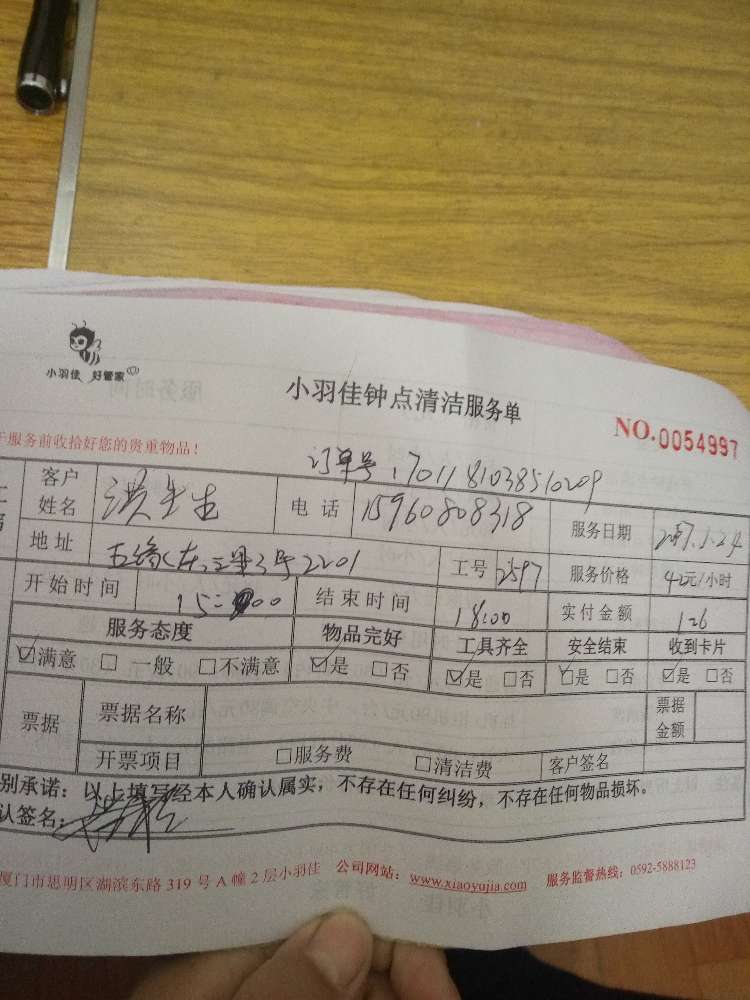 小羽佳 好管家
小羽佳钟点清洁服务单
NO.0054997
于服务前收拾好您的贵重物品!
订单号:1701181038510209
客户姓名 洪先生 电话 15960808318 服务日期
地址 工号 2597 服务价格 42元/小时
开始时间 15:00 结束时间 18:00 实付金额 126
服务态度 物品完好 工具齐全 安全结束 收到卡片
☑满意 □一般 □不满意 ☑是 □否 ☑是 □否 ☑是 □否 ☑是 □否
票据 票据名称 票据金额
开票项目 □服务费 □清洁费 客户签名
别承诺:以上填写经本人确认属实,不存在任何纠纷,不存在任何物品损坏。
认签名:
厦门市思明区湖滨东路319号A幢2层小羽佳 公司网站:www.xiaoyujia.com 服务监督热线:0592-5888123